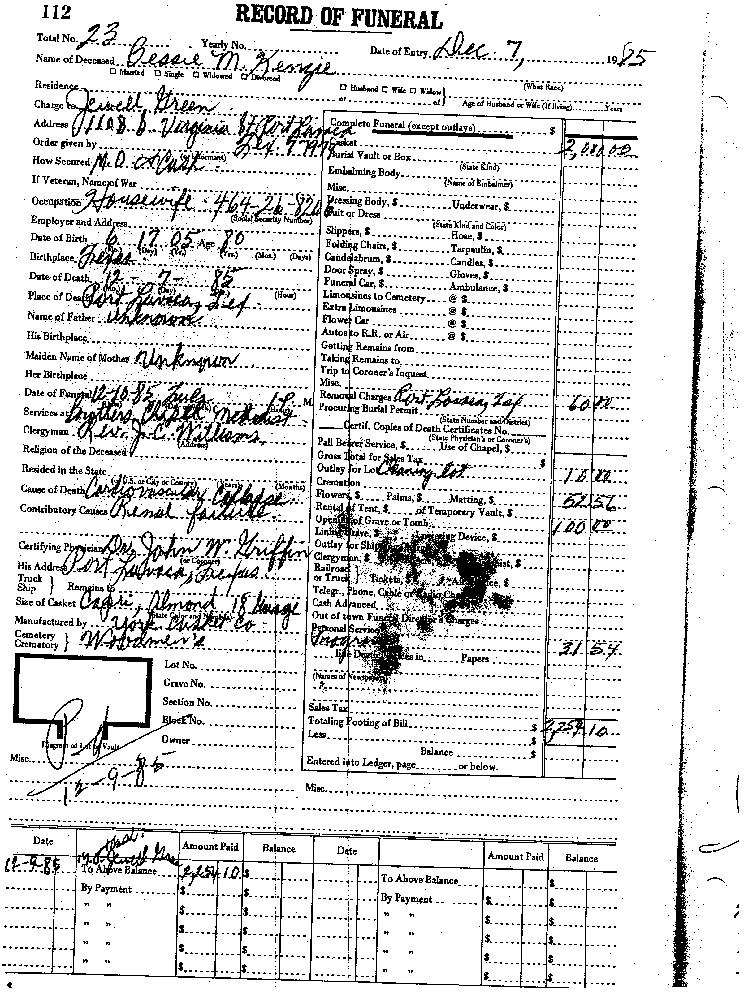 112 RECORD OF FUNERAL
Total No. 23 Yearly No. Date of Entry Dec 7, 1985
Name of Deceased Bessie M. Kenzie
Married Single Widowed Divorced
Husband Wife Widow (What Race)
Residence or of Age of Husband or Wife (If living) Years
Charge to Jewell Green
Address 1108 S. Virginia St Port Lavaca
Complete Funeral (except outlays) $
Order given by
Casket 2,080 00
How Secured
Burial Vault or Box (State Kind)
If Veteran, Name of War
Embalming Body (Name of Embalmer)
Misc.
Occupation Housewife 464-26-8206
(Social Security Number)
Dressing Body, $ Underwear, $
Suit or Dress (State Kind and Color)
Employer and Address
Slippers, $ Hose, $
Date of Birth 6 17 05 Age 80
Folding Chairs, $ Tarpaulin, $
Birthplace Texas
Candelabrum, $ Candles, $
Door Spray, $ Gloves, $
Date of Death 12 - 7 - 85
Funeral Car, $ Ambulance, $
Place of Death Port Lavaca, Tex (Hour)
Limousines to Cemetery @ $
Extra Limousines @ $
Name of Father Unknown
Flower Car @ $
His Birthplace
Autos to R.R. or Air @ $
Getting Remains from
Maiden Name of Mother Unknown
Taking Remains to
Her Birthplace
Trip to Coroner's Inquest
Misc.
Date of Funeral 12-10-85 Tues 1 P. M.
Removal Charges Port Lavaca, Tex 60 00
Services at Brothers Chapel Methodist
Procuring Burial Permit (State Number and District)
Clergyman Rev. J. C. Williams (Address)
Certif. Copies of Death Certificates No.
(State Physician's or Coroner's)
Religion of the Deceased
Pall Bearer Service, $ Use of Chapel, $
Gross Total for Sales Tax $
Resided in the State
(U.S. or City or County) (Years) (Months)
Outlay for Lot Cleaning lot 10 00
Cause of Death Cardiovascular Collapse
Cremation
Contributory Causes Renal failure
Flowers, $ Palms, $ Matting, $ 52 56
Rental of Tent, $ of Temporary Vault, $
Opening of Grave or Tomb 100 00
Lining Grave, $ Lowering Device, $
Certifying Physician Dr. John W. Griffin
(or Coroner)
Outlay for Shipping
Clergyman, $
His Address Port Lavaca, Texas
Railroad or Truck Tickets, $
Truck Ship Remains to
Telegr., Phone, Cable or
Size of Casket Capri, Almond 18 Gauge
Cash Advanced
Manufactured by York Casket Co
Out of town Funeral Director's Charges
Cemetery Crematory Woodmen's
Personal Service
Programs 31 54
Papers
(Names of Newspapers)
Lot No.
Grave No.
Section No.
Block No.
Owner
Diagram of Lot or Vault
Pd 12-9-85
Sales Tax
Totaling Footing of Bill $ 2,254 10
Less $
Balance $
Entered into Ledger, page or below.
Misc. Misc.
Date Amount Paid Balance Date Amount Paid Balance
12-9-85 To Above Balance 2,254 10 $ To Above Balance $
By Payment $ By Payment $ $
" " $ " " $ $
" " $ " " $ $
" " $ " " $ $
" " $ " " $ $